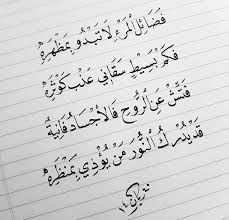 فَضَائِلُ الْمَرْءِ لَا تَبْدُو بِمَظْهَرِهِ
فَكَمْ بَسِيطٍ سَقَانِي عَذْبَ كَوْثَرِهِ
فَتِّشْ عَنِ الرُّوحِ فَالْأَجْسَادُ فَانِيَةٌ
قَدْ يُدْرِكُ النُّورَ مَنْ يُؤْذِي بِمَنْظَرِهِ